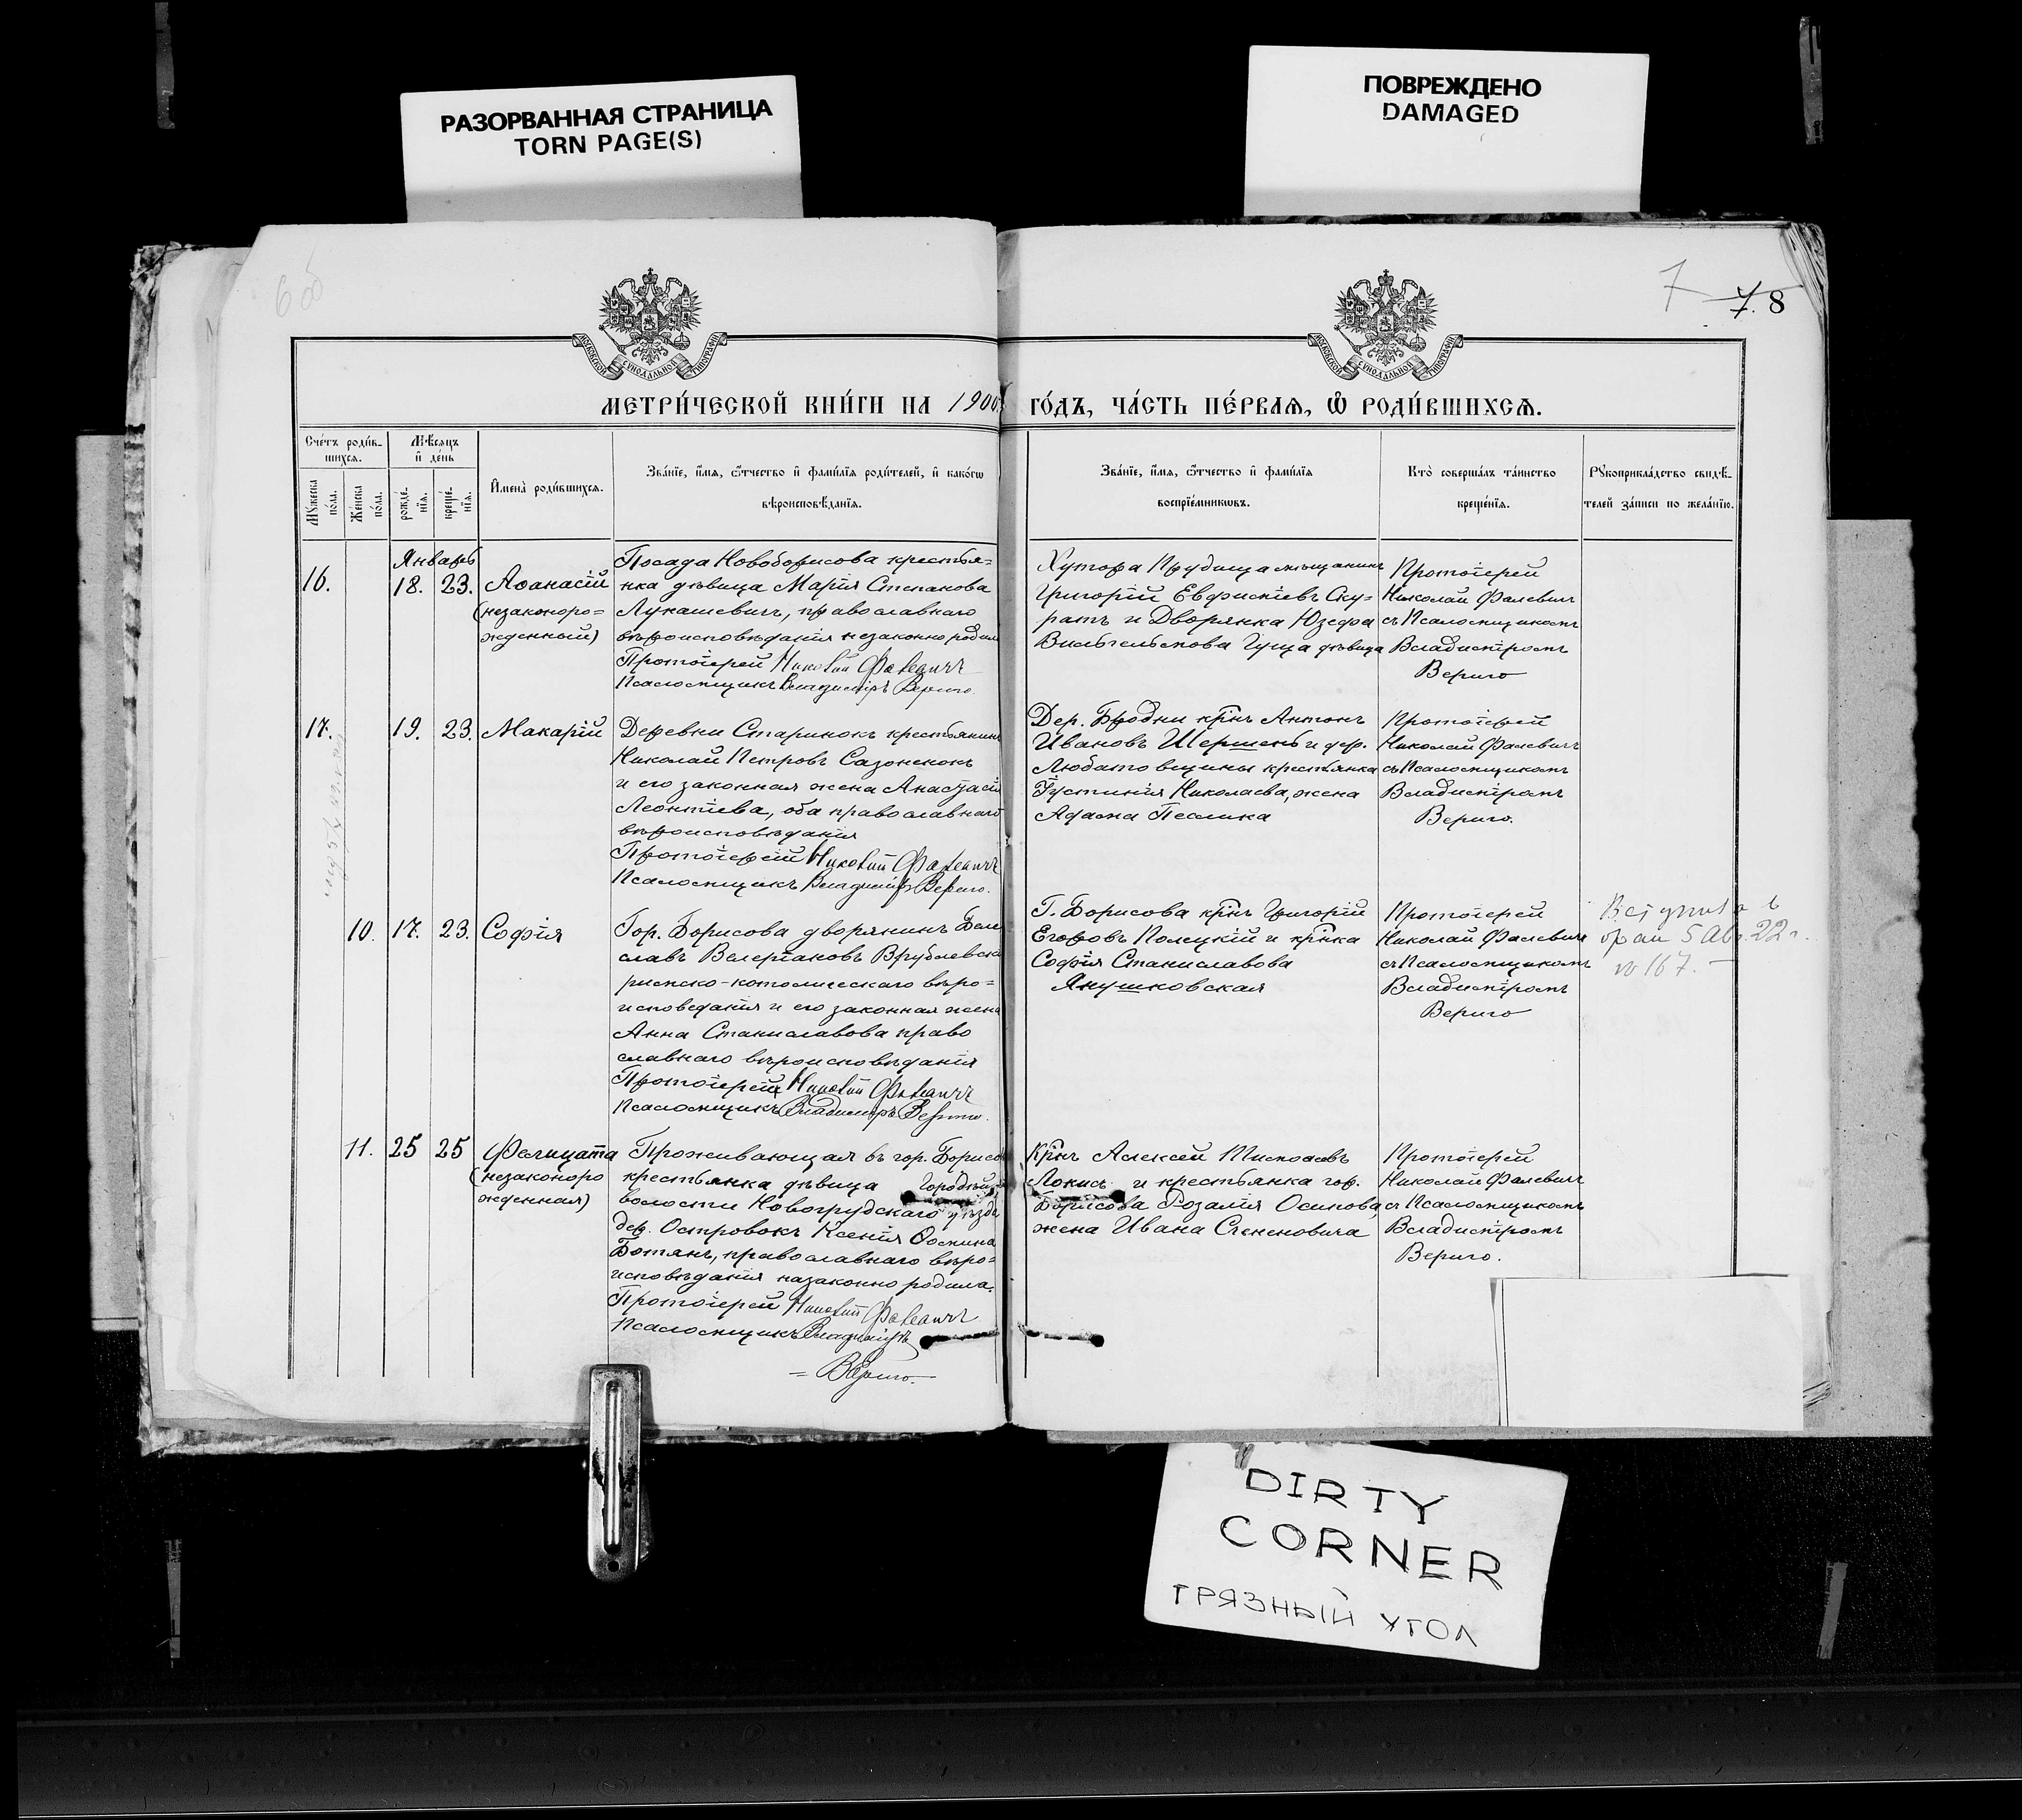 РАЗОРВАННАЯ СТРАНИЦА
TORN PAGE(S)
ПОВРЕЖДЕНО
DAMAGED
6 об
7
7. 8
МОСКОВСКОЙ СѴНОДАЛЬНОЙ ТИПОГРАФІИ
МОСКОВСКОЙ СѴНОДАЛЬНОЙ ТИПОГРАФІИ
МЕТРИ́ЧЕСКОЙ КНИ́ГИ НА 1900
ГО́ДЪ, ЧА́СТЬ ПЕ́РВАѦ, Ѡ҆ РОДИ́ВШИХСѦ.
Сче́тъ роди́в-
шихсѧ.
Мѣ́сѧцъ
и҆ де́нь
Мꙋ́жеска
по́ла.
Же́нска
по́ла.
рожде́-
нїѧ.
креще́-
нїѧ.
И҆мена̀ роди́вшихсѧ.
Зва́нїе, и҆́мѧ, ѻ҆́тчество и҆ фами́лїѧ роди́телей, и҆ како́гѡ
вѣроисповѣ́данїѧ.
Зва́нїе, и҆́мѧ, ѻ҆́тчество и҆ фами́лїѧ
воспрїе́мникѡвъ.
Кто̀ соверша́лъ та́инство
креще́нїѧ.
Рꙋкоприкла́дство свидѣ́-
телей за́писи по жела́нїю.
Январь
16.
18. 23.
Аѳанасій
(незаконоро-
жденный)
Посада Новоборисова крестья-
нка дѣвица Марія Степанова
Лукашевичъ, православнаго
вѣроисповѣданія незаконно родила
Протоіерей Николай Фалевичъ
Псаломщикъ Владиміръ Вериго.
Хутора Прудища мѣщанинъ
Григорій Евфиміевъ Ску-
ратъ и Дворянка Юзефа
Вильгельмова Гуща дѣвица
Протоіерей
Николай Фалевичъ
съ Псаломщикомъ
Владиміромъ
Вериго
17.
19. 23.
Макарій
Деревни Старинокъ крестьянинъ
Николай Петровъ Сазоненокъ
и его законная жена Анастасія
Леонтіева, оба православнаго
вѣроисповѣданія
Протоіерей Николай Фалевичъ
Псаломщикъ Владиміръ Вериго.
Дер. Бродни крнъ Антонъ
Ивановъ Шершень и дер.
Любатовщины крестьянка
Іустинія Николаева, жена
Адама Песлика
Протоіерей
Николай Фалевичъ
съ Псаломщикомъ
Владиміромъ
Вериго.
10. 17. 23.
Софія
Гор. Борисова дворянинъ Боле
славъ Велеріановъ Врублевскі
римско-католическаго вѣро-
исповедания и его законная жена
Анна Станиславова право
славнаго вѣроисповѣданія
Протоіерей Николай Фалевичъ
Псаломщикъ Владиміръ Вериго.
Г. Борисова крнъ Григорій
Егоровъ Полецкій и крнка
Софія Станиславова
Янушковская
Протоіерей
Николай Фалевичъ
съ Псаломщикомъ
Владиміромъ
Вериго
Вступила в
брак 5 Авг. 22 г.
№ 167. —
11. 25 25
Фелицата
(незаконоро
жденная)
Проживающая въ гор. Борисо
крестьянка дѣвица
волости Новогрудскаго уѣзда
дер. Островокъ Ксенія Ѳомина
Ботянъ, православнаго вѣро-
исповѣданія назаконно родила.
Протоіерей Николай Фалевичъ
Псаломщикъ Владиміръ
= Вериго.
Крнъ Алексей
и крестьянка гор.
Борисова Розалія Осипова,
жена Ивана Сененовича
Протоіерей
Николай Фалевичъ
съ Псаломщикомъ
Владиміромъ
Вериго.
DIRTY
CORNER
ГРЯЗНЫЙ УГОЛ